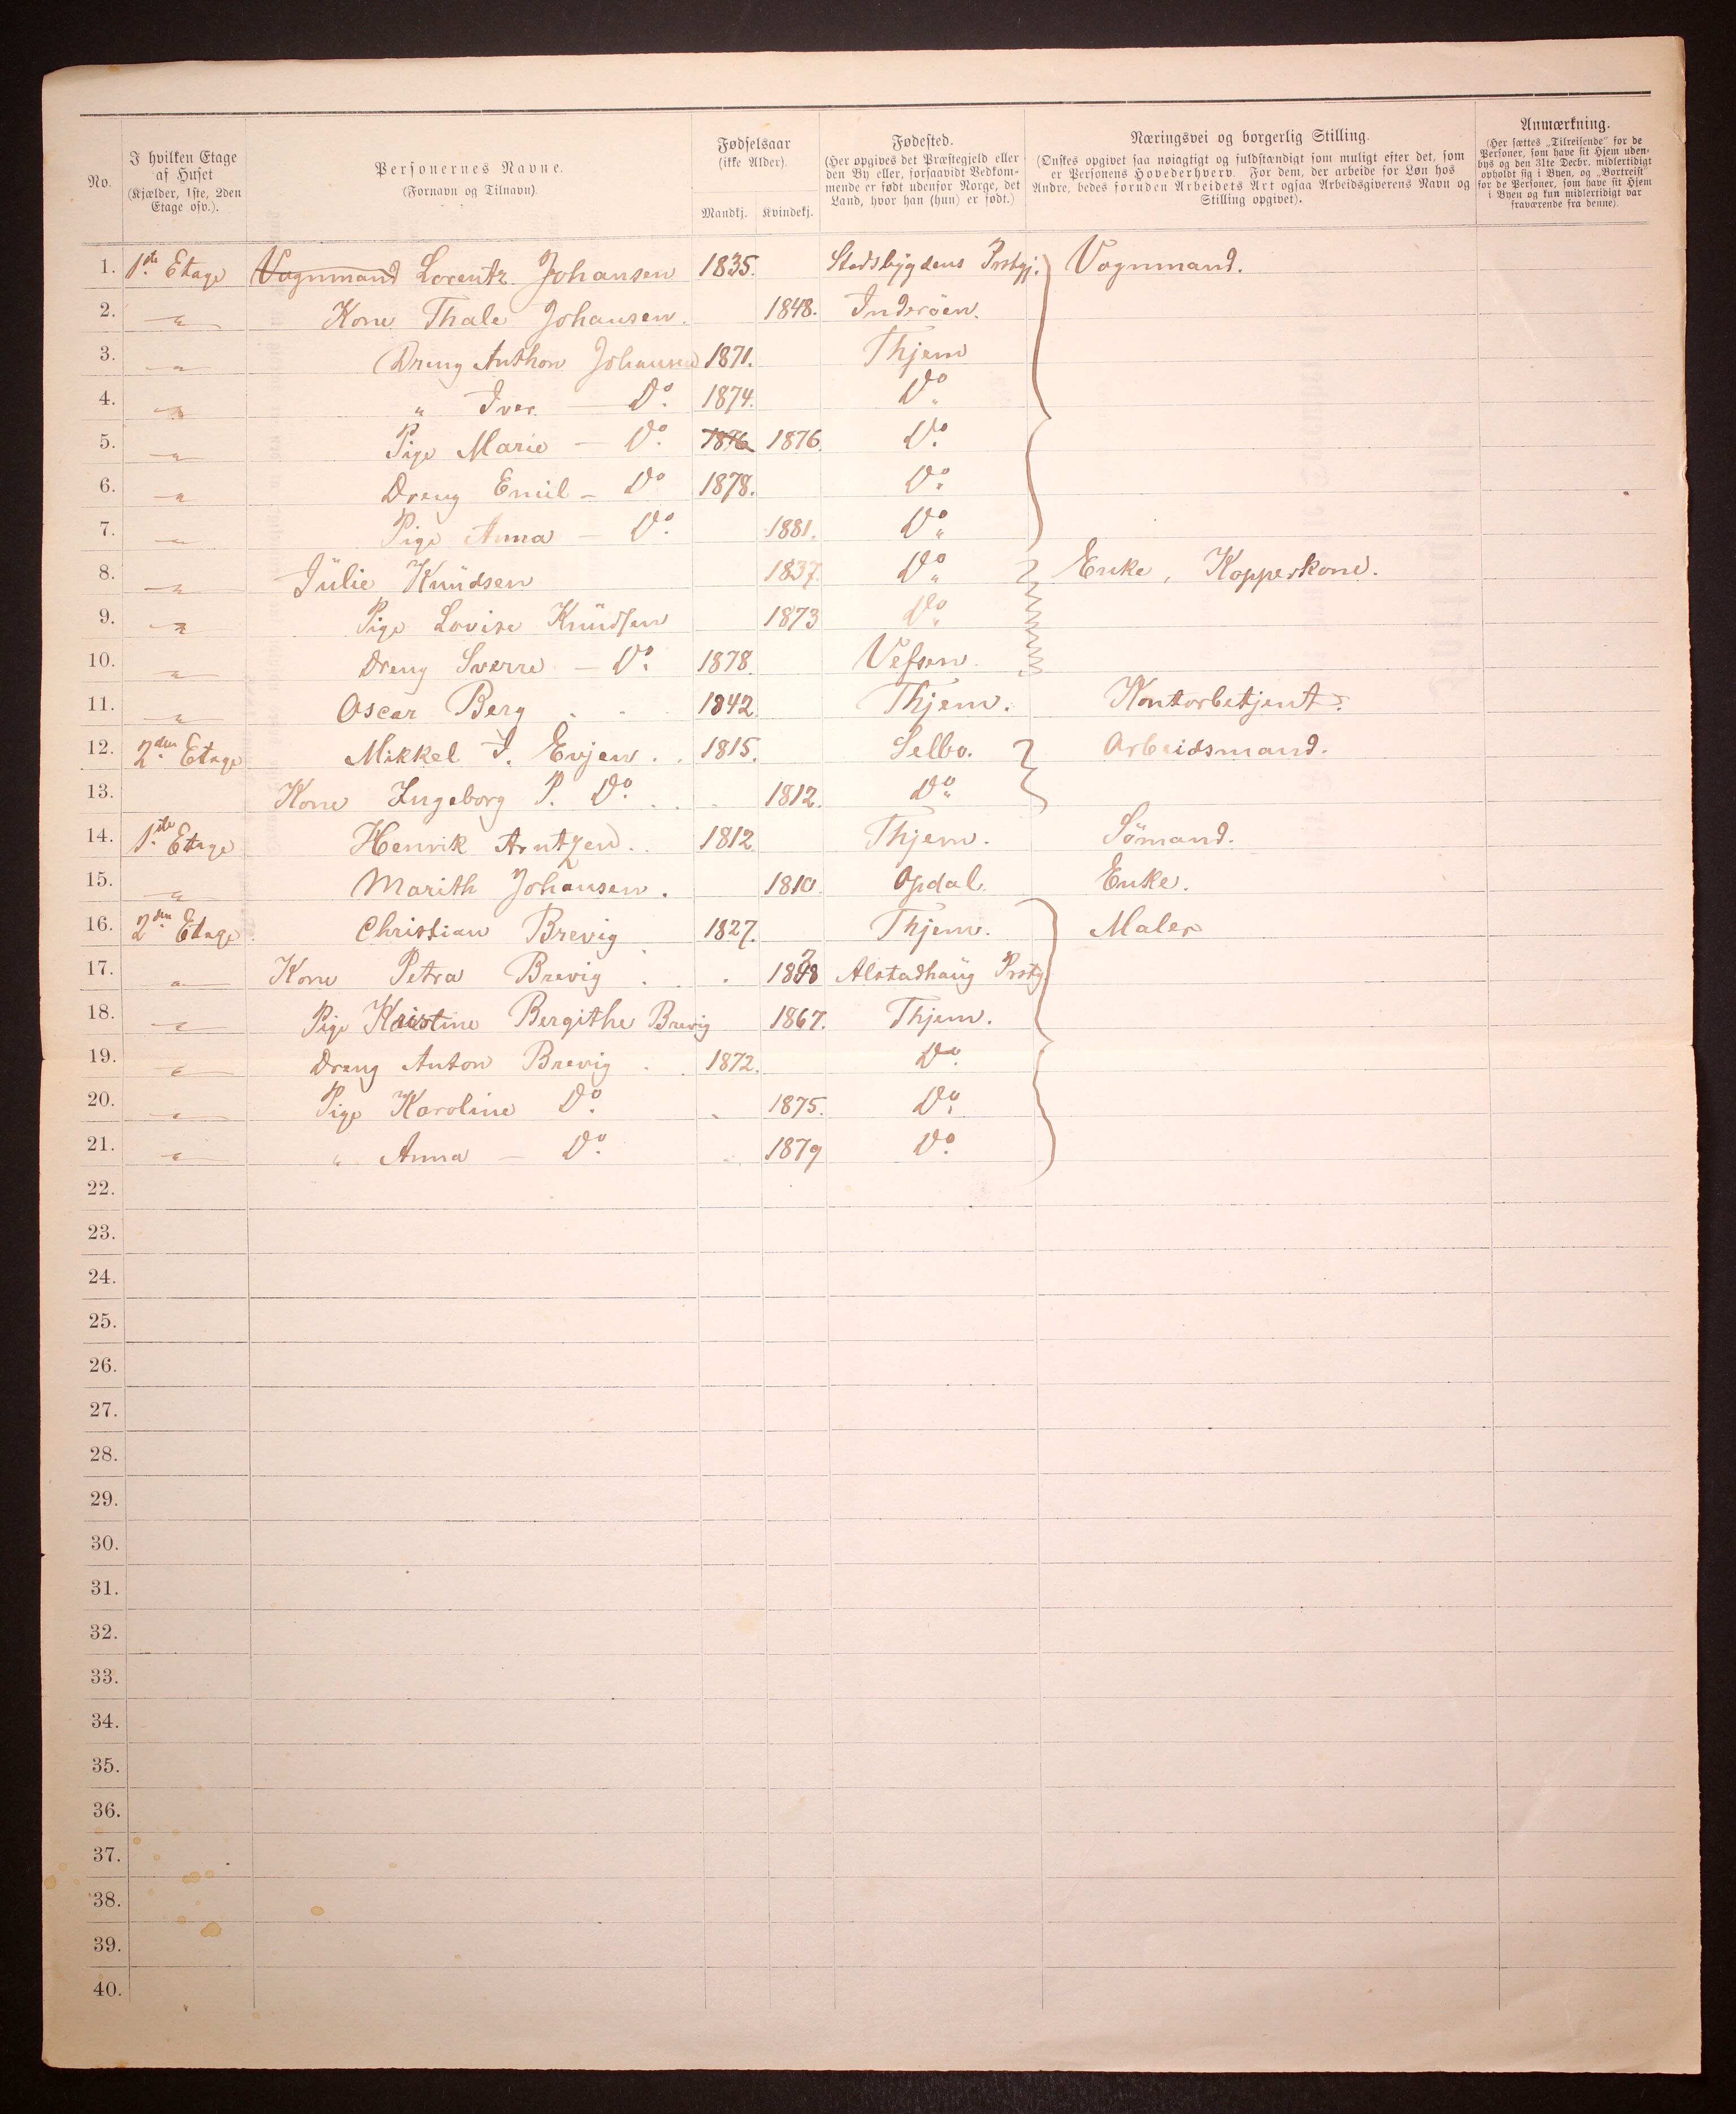 No. | I hvilken Etage af Huset (Kjælder, 1ste, 2den Etage osv.). | Personernes Navne. (Fornavn og Tilnavn). | Fødselsaar (ikke Alder). Mandkj. | Kvindekj. | Fødested. (Her opgives det Præstegjeld eller den By eller, forsaavidt Vedkommende er født udenfor Norge, det Land, hvor han (hun) er født.) | Næringsvei og borgerlig Stilling. (Ønskes opgivet saa nøiagtigt og fuldstændigt som muligt efter det, som er Personens Hovederhverv. For dem, der arbeide for Løn hos Andre, bedes foruden Arbeidets Art ogsaa Arbeidsgiverens Navn og Stilling opgivet). | Anmærkning. (Her sættes „Tilreisende“ for de Personer, som have sit Hjem udenbys og den 31te Decbr. midlertidigt opholdt sig i Byen, og „Bortreist“ for de Personer, som have sit Hjem i Byen og kun midlertidigt var fraværende fra denne).
1. 1.ste Etage Vognmand Lorentz Johansen 1835. Stadsbygdens Prstgj. Vognmand.
2. " Kone Thale Johansen. 1848. Inderöen.
3. " Dreng Anthon Johansen 1871. Thjem
4. " " Iver — Do. 1874. Do.
5. " Pige Marie — Do. 1876 1876. Do.
6. " Dreng Emil — Do 1878. Do.
7. " Pige Anna — Do. 1881. Do.
8. " Jülie Knüdsen 1837. Do. Enke, Kopperkone.
9. " Pige Lovise Knüdsen 1873 Do.
10. " Dreng Sverre — Do. 1878. Vefsen.
11. " Oscar Berg . . 1842. Thjem. Kontorbetjent.
12. 2.den Etage Mikkel J. Evjen . . 1815. Selbo. Arbeidsmand.
13. Kone Ingeborg P. Do. . . 1812. Do.
14. 1.ste Etage Henrik Arntzen . . 1812. Thjem. Sömand.
15. " Marith Johansen . 1810. Opdal. Enke.
16. 2.den Etage Christian Brevig 1827. Thjem. Maler
17. " Kone Petra Brevig . . Alstadhaüg Prstgj.
18. " Pige Kristine Bergithe Brevig 1867. Thjem.
19. " Dreng Anton Brevig . 1872. Do.
20. " Pige Karoline Do. 1875. Do.
21. " " Anna — Do. 1879 Do.
22.
23.
24.
25.
26.
27.
28.
29.
30.
31.
32.
33.
34.
35.
36.
37.
38.
39.
40.